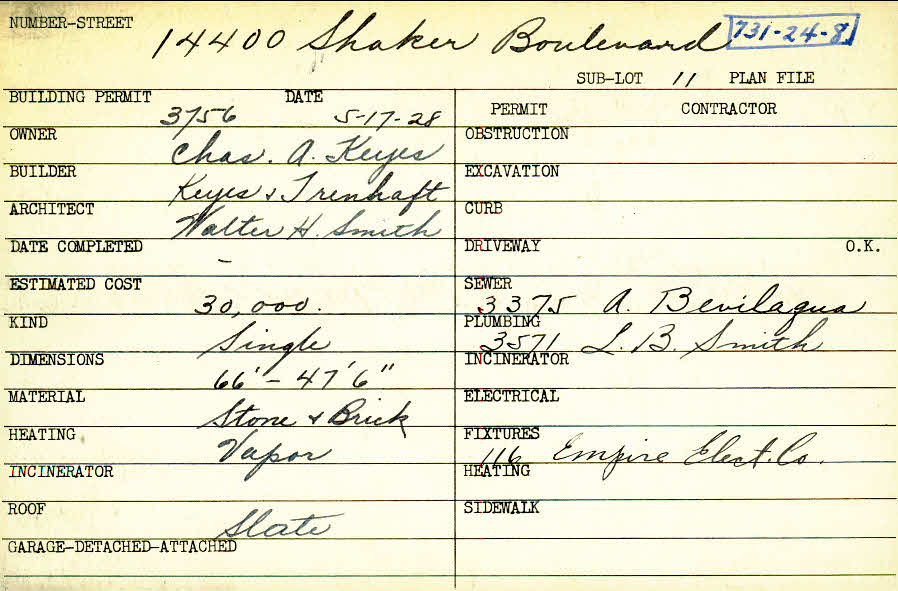 NUMBER-STREET 14400 Shaker Boulevard 731-24-8
SUB-LOT 11 PLAN FILE
BUILDING PERMIT 3756 DATE 5-17-28
OWNER Chas. A. Keyes
BUILDER Keyes & Treuhaft
ARCHITECT Walter H. Smith
DATE COMPLETED -
ESTIMATED COST 30,000.
KIND Single
DIMENSIONS 66' - 47'6"
MATERIAL Stone & Brick
HEATING Vapor
INCINERATOR
ROOF Slate
GARAGE-DETACHED-ATTACHED
PERMIT CONTRACTOR
OBSTRUCTION
EXCAVATION
CURB
DRIVEWAY O.K.
SEWER 3375 A. Bevilaqua
PLUMBING 3571 L. B. Smith
INCINERATOR
ELECTRICAL
FIXTURES 116 Empire Elect. Co.
HEATING
SIDEWALK